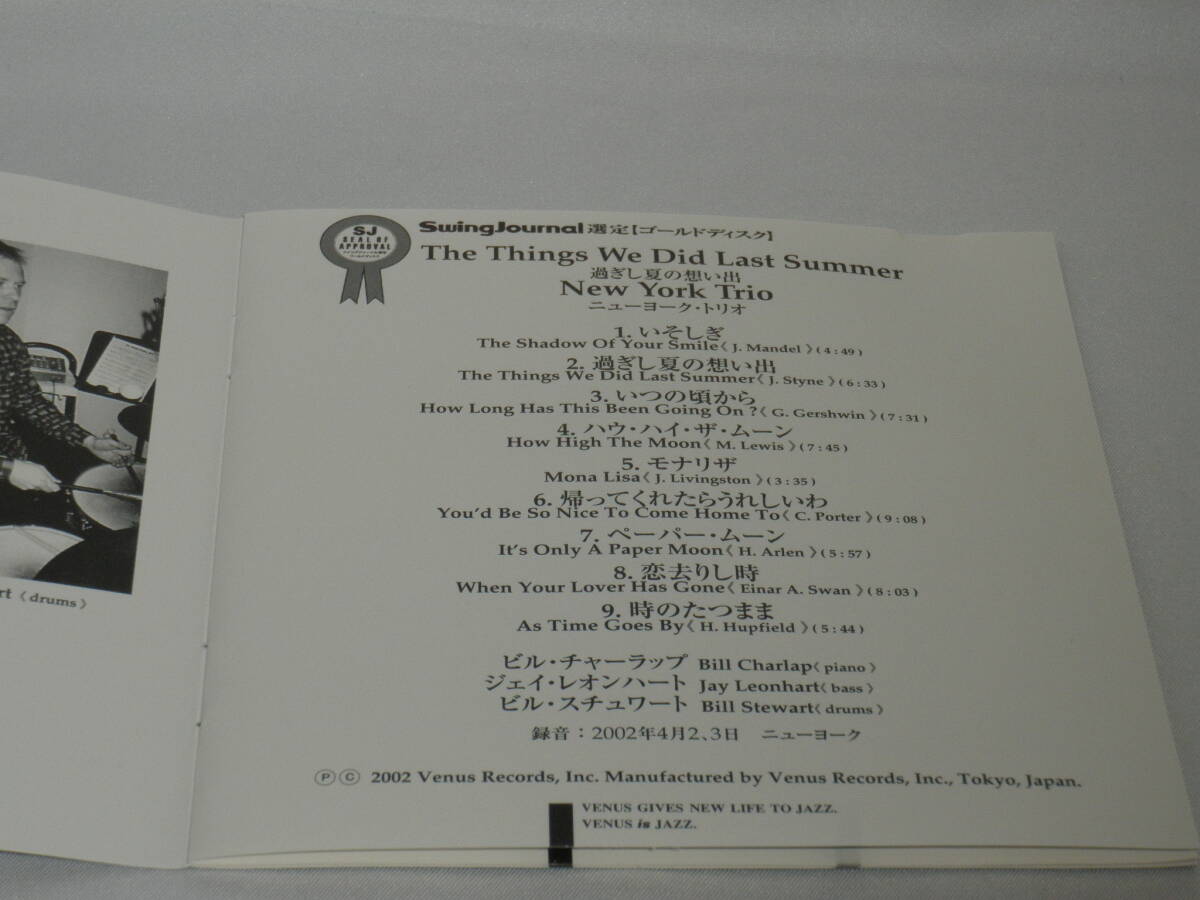 SJ
SEAL OF
APPROVAL
SwingJournal 選定【ゴールドディスク】
The Things We Did Last Summer
過ぎし夏の想い出
New York Trio
ニューヨーク・トリオ
1. いそしぎ
The Shadow Of Your Smile《 J. Mandel 》(4:49)
2. 過ぎし夏の想い出
The Things We Did Last Summer《 J. Styne 》(6:33)
3. いつの頃から
How Long Has This Been Going On ?《 G. Gershwin 》(7:31)
4. ハウ・ハイ・ザ・ムーン
How High The Moon《 M. Lewis 》(7:45)
5. モナリザ
Mona Lisa《 J. Livingston 》(3:35)
6. 帰ってくれたらうれしいわ
You'd Be So Nice To Come Home To《 C. Porter 》(9:08)
7. ペーパー・ムーン
It's Only A Paper Moon《 H. Arlen 》(5:57)
8. 恋去りし時
When Your Lover Has Gone《 Einar A. Swan 》(8:03)
9. 時のたつまま
As Time Goes By《 H. Hupfield 》(5:44)
ビル・チャーラップ Bill Charlap《 piano 》
ジェイ・レオンハート Jay Leonhart《 bass 》
ビル・スチュワート Bill Stewart《 drums 》
録音：2002年4月2、3日 ニューヨーク
Ⓟ Ⓒ 2002 Venus Records, Inc. Manufactured by Venus Records, Inc., Tokyo, Japan.
VENUS GIVES NEW LIFE TO JAZZ.
VENUS is JAZZ.
rt《 drums 》